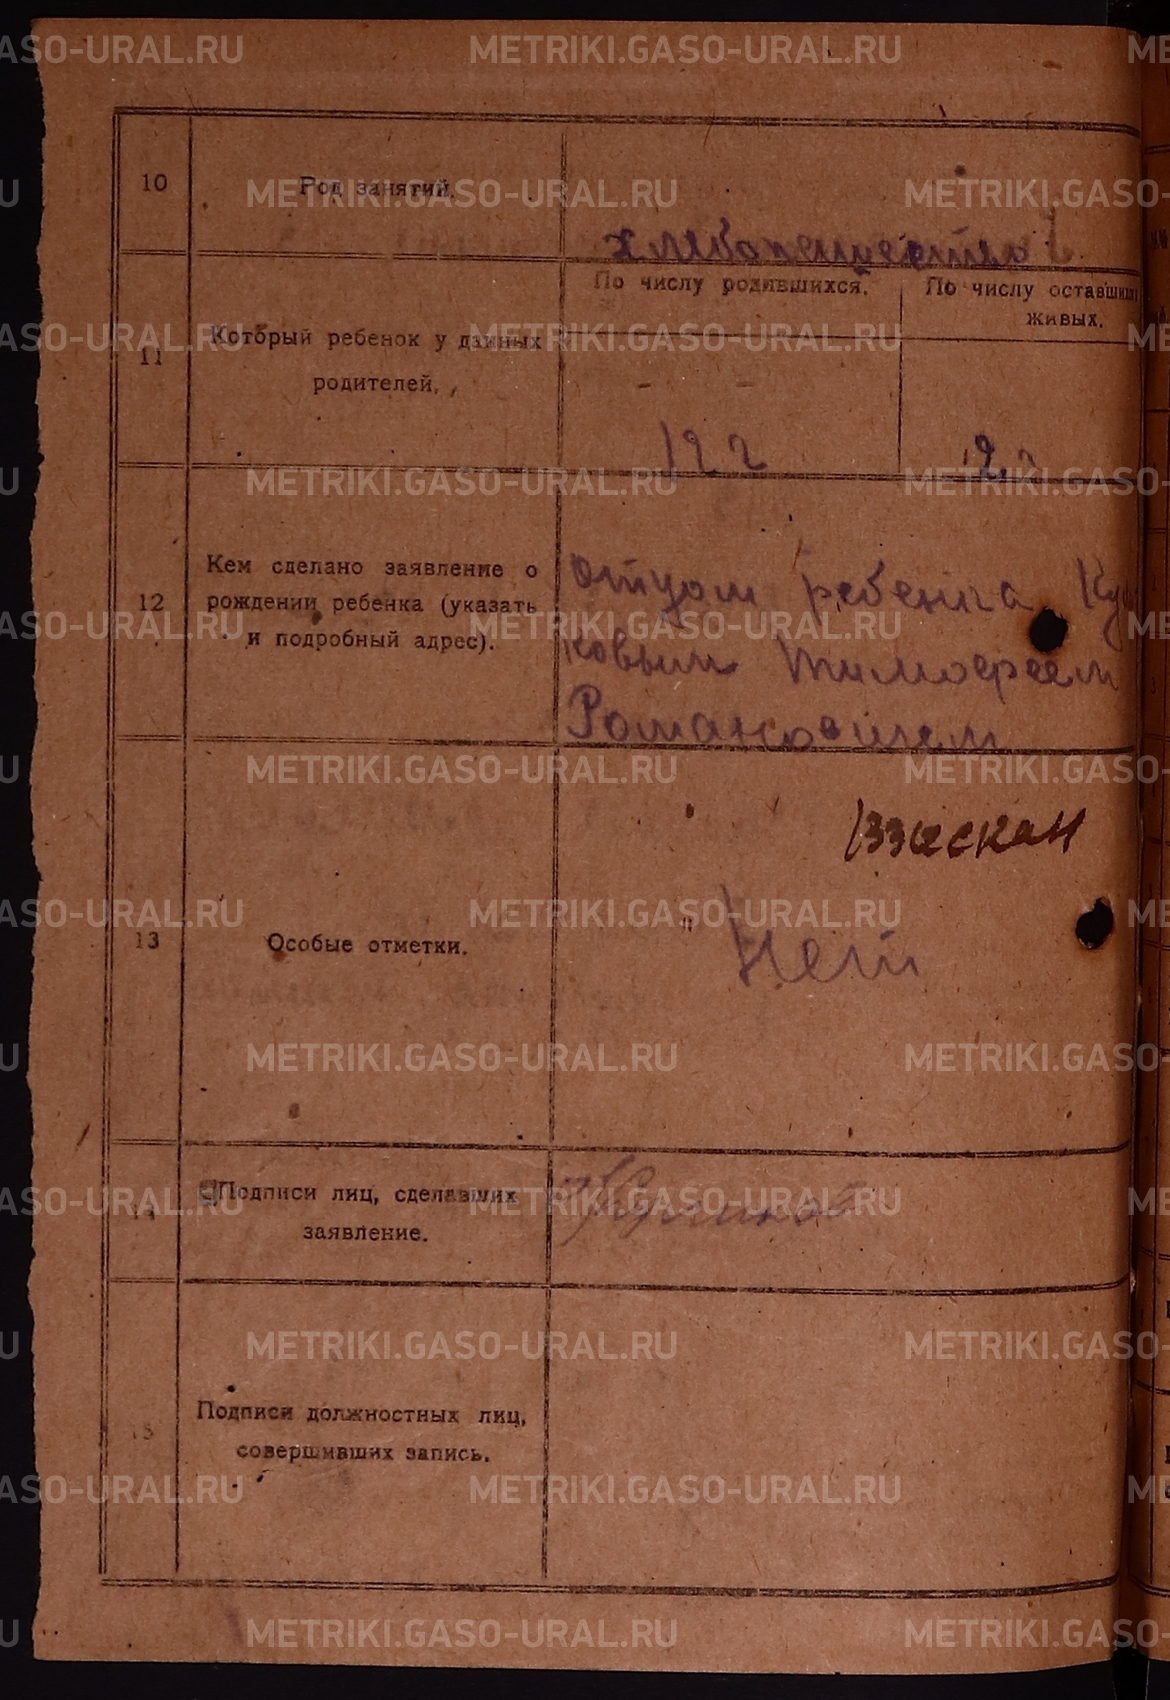 10
Род занятий.
хлебопашество
11
Который ребенок у данных
родителей.
По числу родившихся.
По числу оставшихся
живых.
12
Кем сделано заявление о
рождении ребенка (указать
и подробный адрес).
отцом ребенка
ковым Тимофеем
Романовичем
13
Особые отметки.
Взыскан
"Нет
14
Подписи лиц, сделавших
заявление.
15
Подписи должностных лиц,
совершивших запись.
METRIKI.GASO-URAL.RU